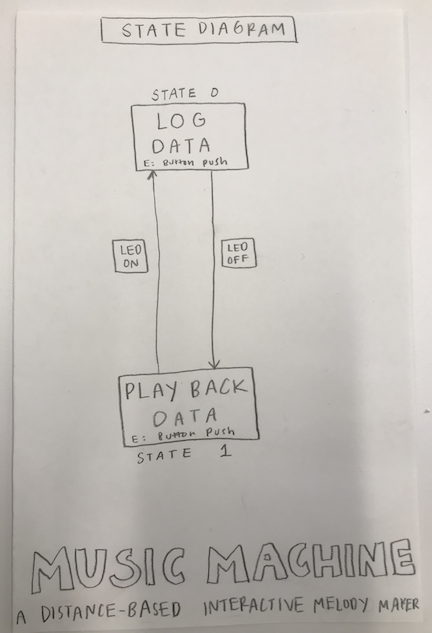 STATE DIAGRAM
STATE 0
LOG
DATA
E: Button Push
LED
ON
LED
OFF
PLAY BACK
DATA
E: Button Push
STATE 1
MUSIC MACHINE
A DISTANCE-BASED INTERACTIVE MELODY MAKER